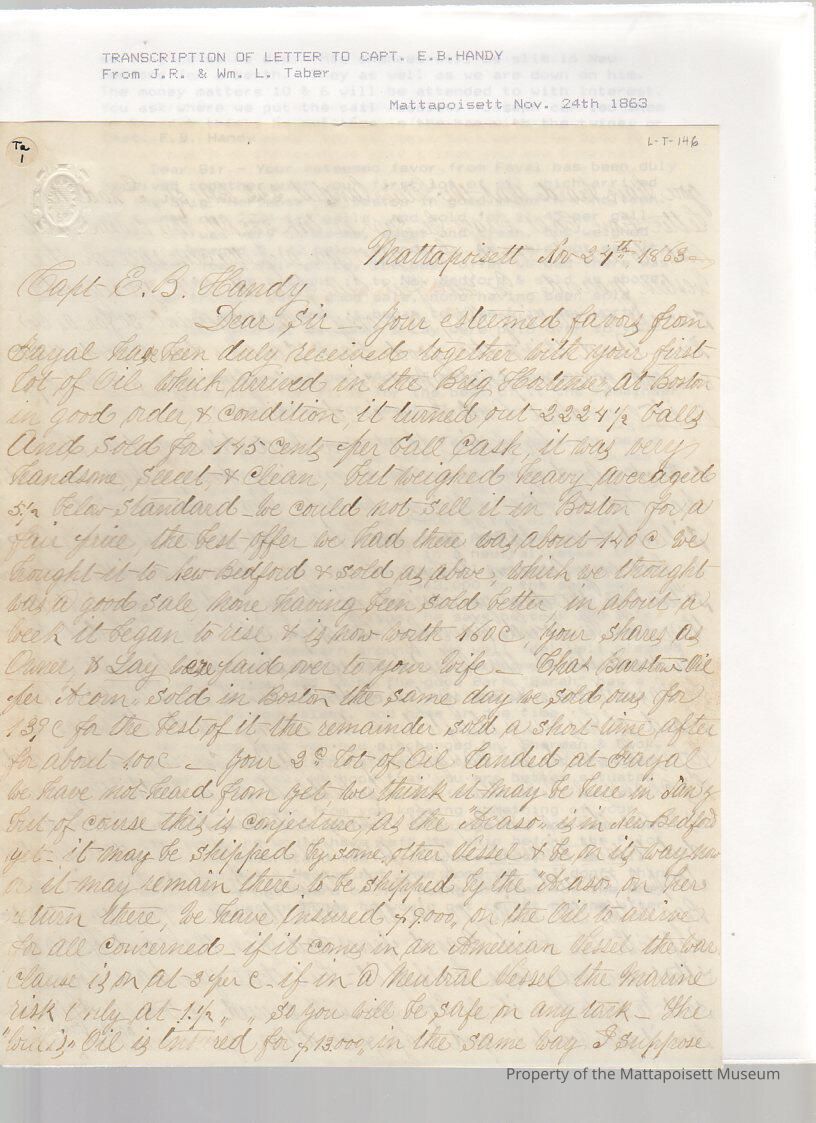 TRANSCRIPTION OF LETTER TO CAPT. E.B.HANDY
From J.R. & Wm. L. Taber
Mattapoisett Nov. 24th 1863
Ta
1
L-T-146
Mattapoisett Nov 24th 1863
Capt E. B. Handy
Dear Sir – Your esteemed favor from
Fayal has been duly received together with your first
lot of Oil which arrived in the Brig Hortense, at Boston
in good order & condition, it turned out 2224 1/2 Galls
And sold for 145 cents per Gall Cash, it was very
handsome, Sweet, & Clean, but weighed heavy averaged
5 1/2 below standard – we could not sell it in Boston for a
fair price, the best offer we had there was about 140 c we
brought it to New Bedford & sold as above, which we thought
was a good sale none having been sold better, in about a
week it began to rise & is now worth 160c, your shares as
Owner, & Lay were paid over to your Wife – Chas Oil
per Acorn sold in Boston the same day we sold ours for
139 c for the best of it the remainder sold a short time after
for about 100c – your 2d lot of Oil landed at Fayal
we have not heard from yet, we think it may be here in Jany
but of course this is conjecture, as the "Acaso" is in New Bedford
yet – it may be shipped by some other Vessel & be on its way now
or it may remain there to be shipped by the "Acaso" on her
return there, We have insured $9.000,, on the Oil to arrive
for all concerned – if it comes in an American Vessel the War
Clause is on at 3 per c – if in a Neutral Vessel the Marine
risk only at 1 1/2 ,, ,, so you will be safe on any tack – The
"Willis" Oil is Insured for $13.000,, in the same way I suppose
Property of the Mattapoisett Museum